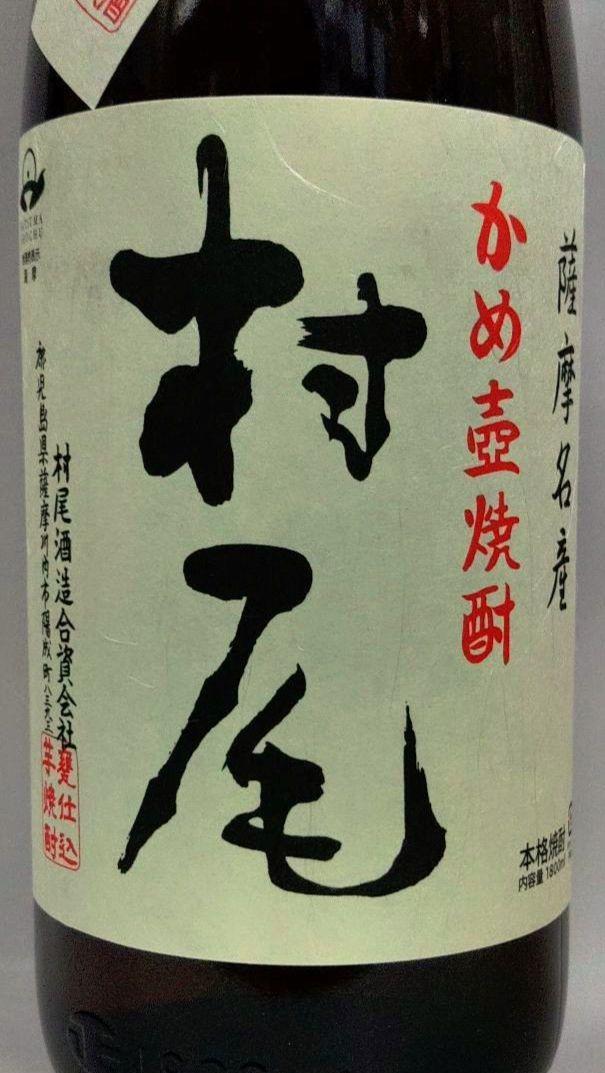 薩摩名産
かめ壺焼酎
村尾
村尾酒造合資会社
鹿児島県薩摩川内市陽成町八三九三
甕仕込
芋焼酎
本格焼酎
内容量 1800ml